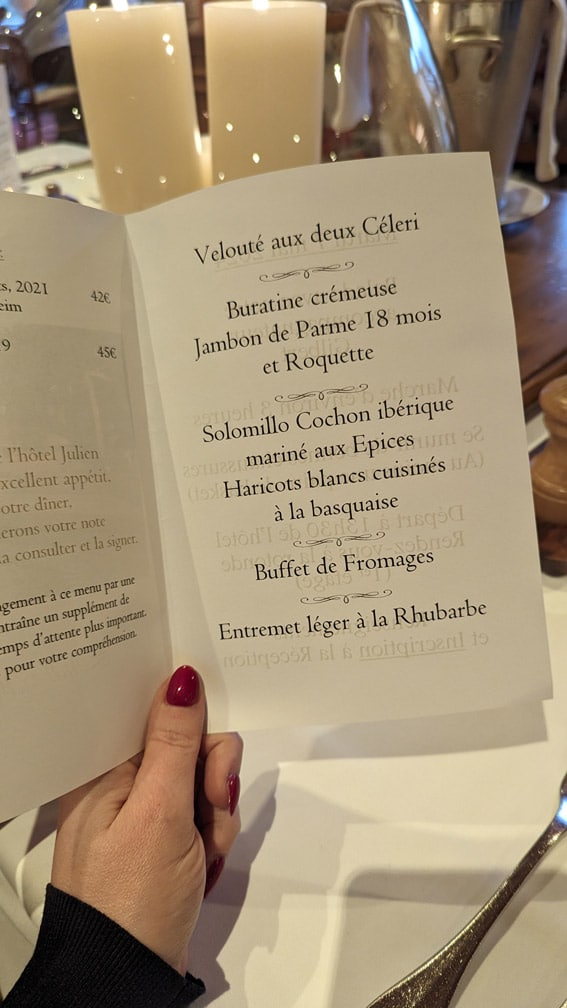 s, 2021
eim
42€
9
45€
l'hôtel Julien
xcellent appétit.
otre dîner.
erons votre note
a consulter et la signer.
gement à ce menu par une
ntraîne un supplément de
emps d'attente plus important.
pour votre compréhension.
Velouté aux deux Céleri
Buratine crémeuse
Jambon de Parme 18 mois
et Roquette
Solomillo Cochon ibérique
mariné aux Epices
Haricots blancs cuisinés
à la basquaise
Buffet de Fromages
Entremet léger à la Rhubarbe
et Inscription à la Réception